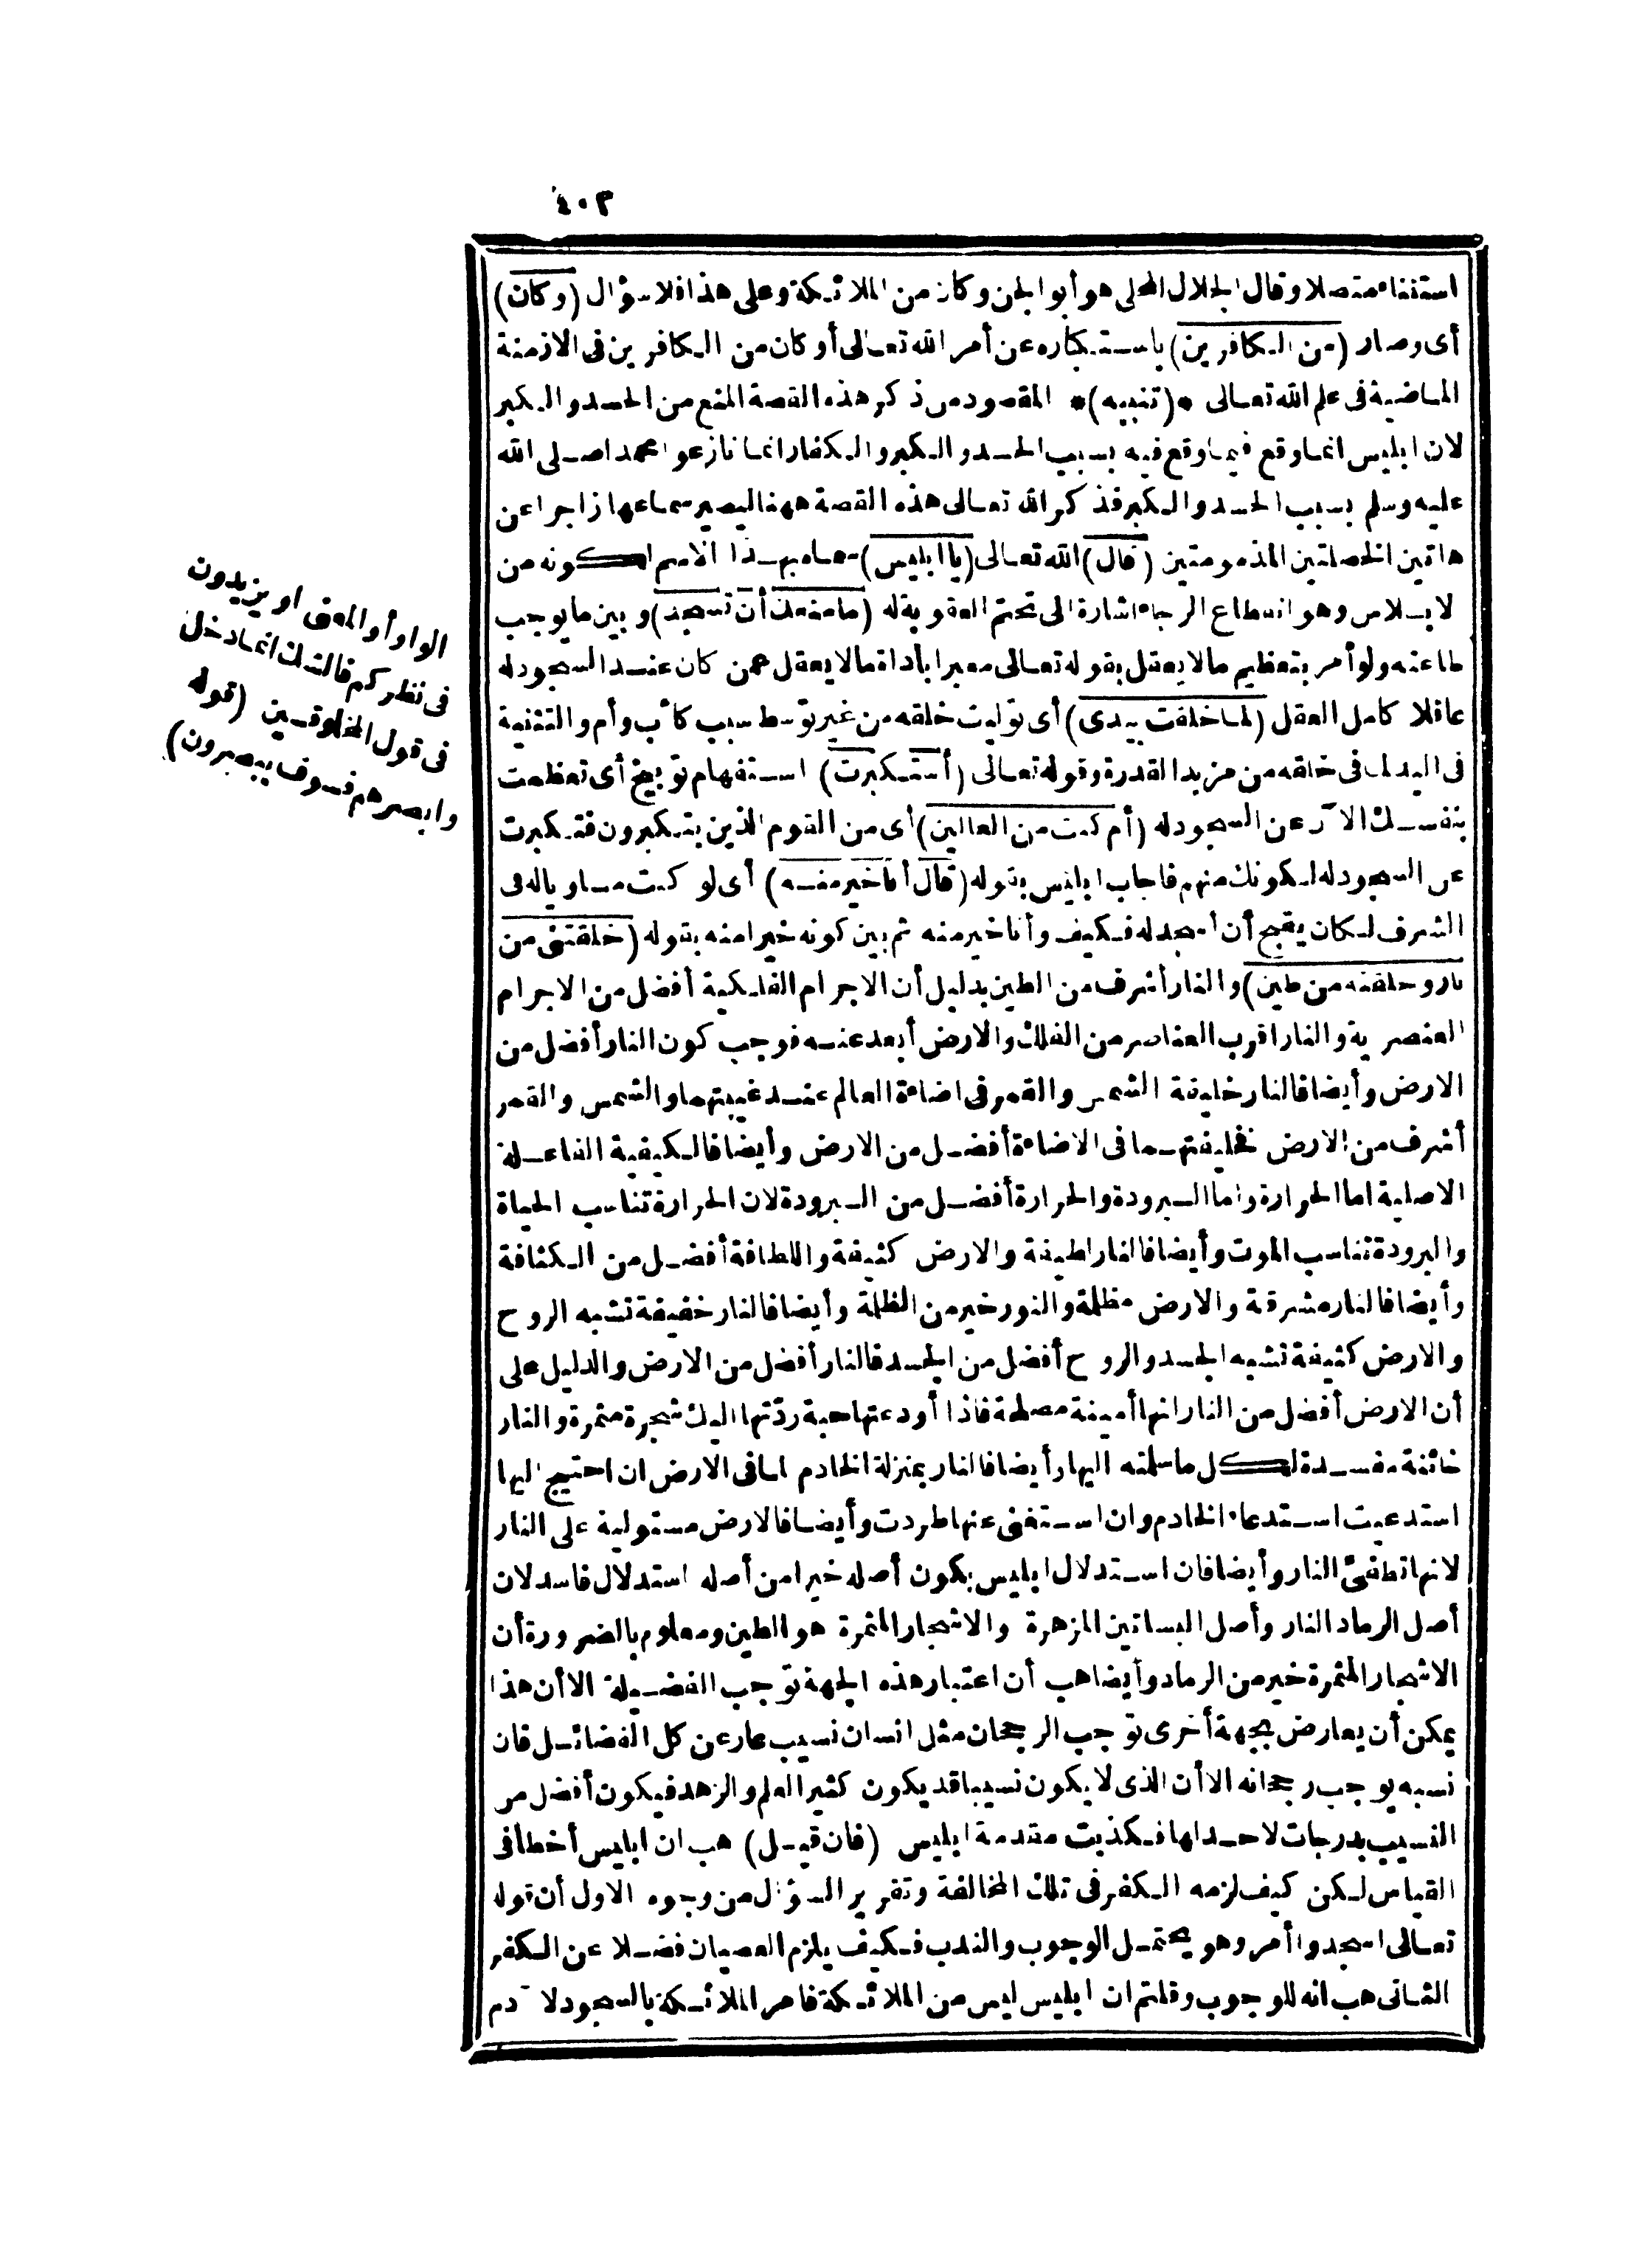 ٤٠٣
استثناء متصلا وقال الجلال المحلى هو أبو الجن وكان من الملائكة وعلى هذا فلا سؤال (وكان)
أى وصار (من الكافرين) باستكباره عن أمر الله تعالى أو كان من الكافرين فى الازمنة
الماضية فى علم الله تعالى *(تنبيه)* المقصود من ذكر هذه القصة المنع من الحسد والكبر
لان ابليس انما وقع فيما وقع فيه بسبب الحسد والكبر والكفار انما نازعوا محمدا صلى الله
عليه وسلم بسبب الحسد والكبر فذكر الله تعالى هذه القصة ههنا ليصير سماعها زاجرا عن
هاتين الخصلتين المذمومتين (قال) الله تعالى (يا ابليس) سماه بهذا الاسم لكونه من
الابلاس وهو انقطاع الرجاء اشارة الى تحتم العقوبة له (ما منعك أن تسجد) وبين ما يوجب
طاعته ولو أمر بتعظيم ما لا يعقل بقوله تعالى معبرا بأداة ما لا يعقل عمن كان عند السجود له
عاقلا كامل العقل (لما خلقت بيدى) أى توليت خلقه من غير توسط سبب كأب وأم والتثنية
فى اليد لما فى خلقه من مزيد القدرة وقوله تعالى (أستكبرت) استفهام توبيخ أى تعظمت
بنفسك الآن عن السجود له (أم كنت من العالين) أى من القوم الذين يتكبرون فتكبرت
عن السجود له لكونك منهم فاجاب ابليس بقوله (قال أنا خير منه) أى لو كنت مساويا له فى
الشرف لكان يقبح أن أسجد له فكيف وأنا خير منه ثم بين كونه خيرا منه بقوله (خلقتنى من
نار وخلقته من طين) والنار أشرف من الطين بدليل أن الاجرام الفلكية أفضل من الاجرام
العنصرية والنار اقرب العناصر من الفلك والارض أبعد عنه فوجب كون النار أفضل من
الارض وأيضا فالنار خليفة الشمس والقمر فى اضاءة العالم عند غيبتهما والشمس والقمر
أشرف من الارض فخليفتهما فى الاضاءة أفضل من الارض وأيضا فالكيفية الفاعلة
الاصلية اما الحرارة واما البرودة والحرارة أفضل من البرودة لان الحرارة تناسب الحياة
والبرودة تناسب الموت وأيضا فالنار لطيفة والارض كثيفة واللطافة أفضل من الكثافة
وأيضا فالنار مشرقة والارض مظلمة والنور خير من الظلمة وأيضا فالنار خفيفة تشبه الروح
والارض كثيفة تشبه الجسد والروح أفضل من الجسد فالنار أفضل من الارض والدليل على
أن الارض أفضل من النار انها أمينة مصلحة فاذا أودعتها حبة ردّتها اليك شجرة مثمرة والنار
خائنة مفسدة لكل ما سلمته اليها وأيضا فالنار بمنزلة الخادم لما فى الارض ان احتيج اليها
استدعيت استدعاء الخادم وان استغنى عنها طردت وأيضا فالارض مستولية على النار
لانها تطفئ النار وأيضا فان استدلال ابليس بكون أصله خيرا من أصله استدلال فاسد لان
أصل الرماد النار وأصل البساتين المزهرة والاشجار المثمرة هو الطين ومعلوم بالضرورة أن
الاشجار المثمرة خير من الرماد وأيضا هب أن اعتبار هذه الجهة توجب الفضيلة الا أن هذا
يمكن أن يعارض بجهة أخرى توجب الرجحان مثل انسان نسيب عار عن كل الفضائل فان
نسبه يوجب رجحانه الا أن الذى لا يكون نسيبا قد يكون كثير العلم والزهد فيكون أفضل من
النسيب بدرجات لا حد لها فكذبت مقدمة ابليس (فان قيل) هب ان ابليس أخطأ فى
القياس لكن كيف لزمه الكفر فى تلك المخالفة وتقرير السؤال من وجوه الاول أن قوله
تعالى اسجدوا أمر وهو يحتمل الوجوب والندب فكيف يلزم العصيان فضلا عن الكفر
الثانى هب انه للوجوب وقلتم ان ابليس ليس من الملائكة فامر الملائكة بالسجود لا دم
الواو أو المعنى او يزيدون
فى نظركم فالشك انما دخل
فى قول المخلوقين (قوله
وابصرهم فسوف يبصرون)